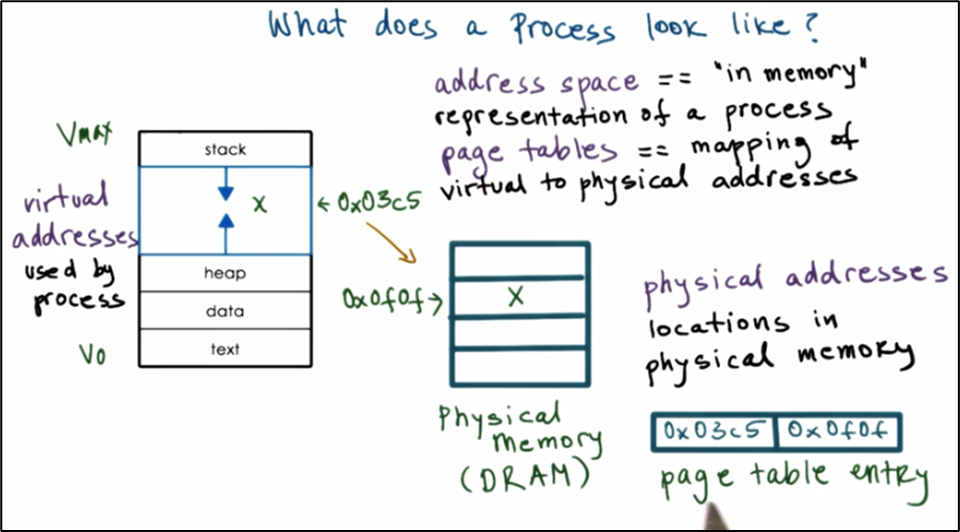 What does a Process look like?
address space == "in memory"
representation of a process
page tables == mapping of
virtual to physical addresses
Vmax
stack
virtual
addresses
used by
process
X
←0x03c5
heap
data
text
V0
0x0f0f→
X
Physical
memory
(DRAM)
physical addresses
locations in
physical memory
0x03c5 0x0f0f
page table entry